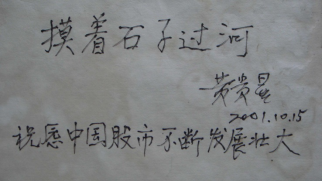 摸着石子过河
黄贵显
2001.10.15
祝愿中国股市不断发展壮大